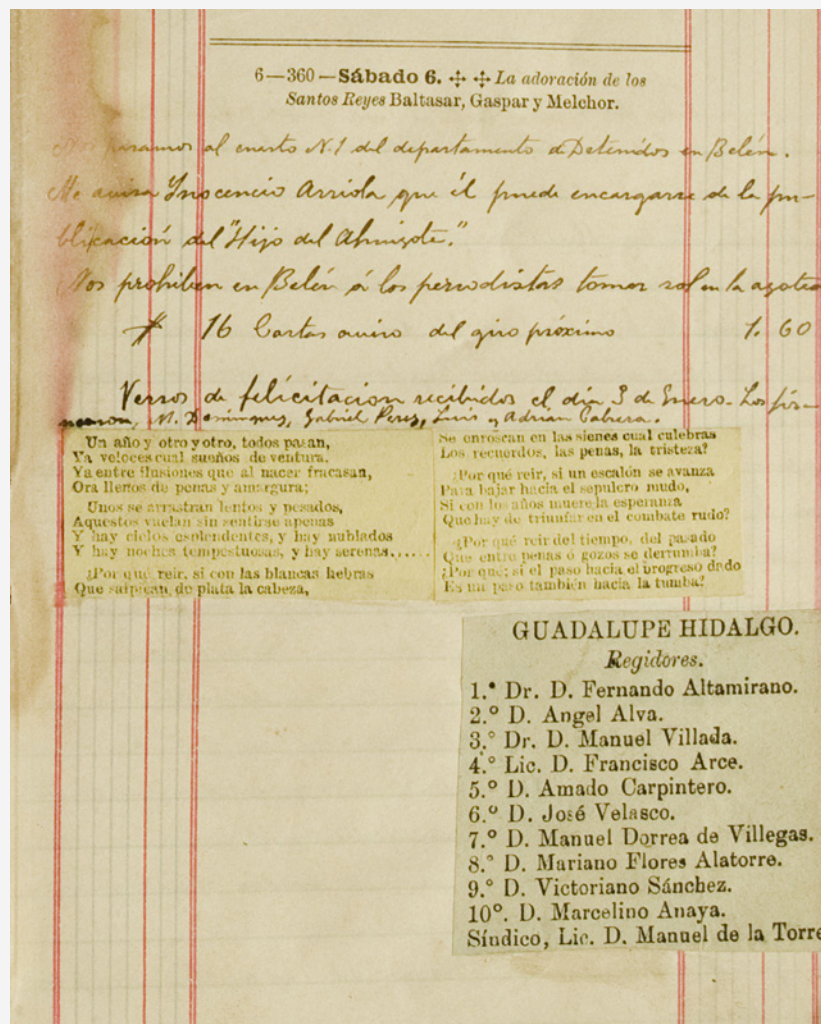 6—360—Sábado 6. ✣ ✣ La adoración de los
Santos Reyes Baltasar, Gaspar y Melchor.
Nos pasamos al cuarto N. 1 del departamento de Detenidos en Belén.
Me avisa Inocencio Arriola que él puede encargarse de la pu-
blicación del "Hijo del Ahuizote."
Nos prohiben en Belén á los periodistas tomar sol en la azotea
16 Cartas aviso del giro próximo 1. 60
Versos de felicitacion recibidos el dia 3 de Enero. Los fir-
maron, M. Dominguez, Gabriel Perez, Luis y Adrian Cabrera.
Un año y otro y otro, todos pasan,
Ya veloces cual sueños de ventura.
Ya entre ilusiones que al nacer fracasan,
Ora llenos de penas y amargura;
Unos se arrastran lentos y pesados,
Aquestos vuelan sin sentirse apenas
Y hay cielos esplendentes, y hay nublados
Y hay noches tempestuosas, y hay serenas......
¿Por qué reir, si con las blancas hebras
Que salpican de plata la cabeza,
Se enroscan en las sienes cual culebras
Los recuerdos, las penas, la tristeza?
¿Por qué reir, si un escalón se avanza
Para bajar hacia el sepulcro mudo,
Si con los años muere la esperanza
Que hay de triunfar en el combate rudo?
¿Por qué reir del tiempo, del pasado
Que entre penas ó gozos se derrumba?
¿Por qué; si el paso hacia el progreso dado
Es un paso también hacia la tumba?
GUADALUPE HIDALGO.
Regidores.
1.º Dr. D. Fernando Altamirano.
2.º D. Angel Alva.
3.º Dr. D. Manuel Villada.
4.º Lic. D. Francisco Arce.
5.º D. Amado Carpintero.
6.º D. José Velasco.
7.º D. Manuel Dorrea de Villegas.
8.º D. Mariano Flores Alatorre.
9.º D. Victoriano Sánchez.
10º. D. Marcelino Anaya.
Síndico, Lic. D. Manuel de la Torre